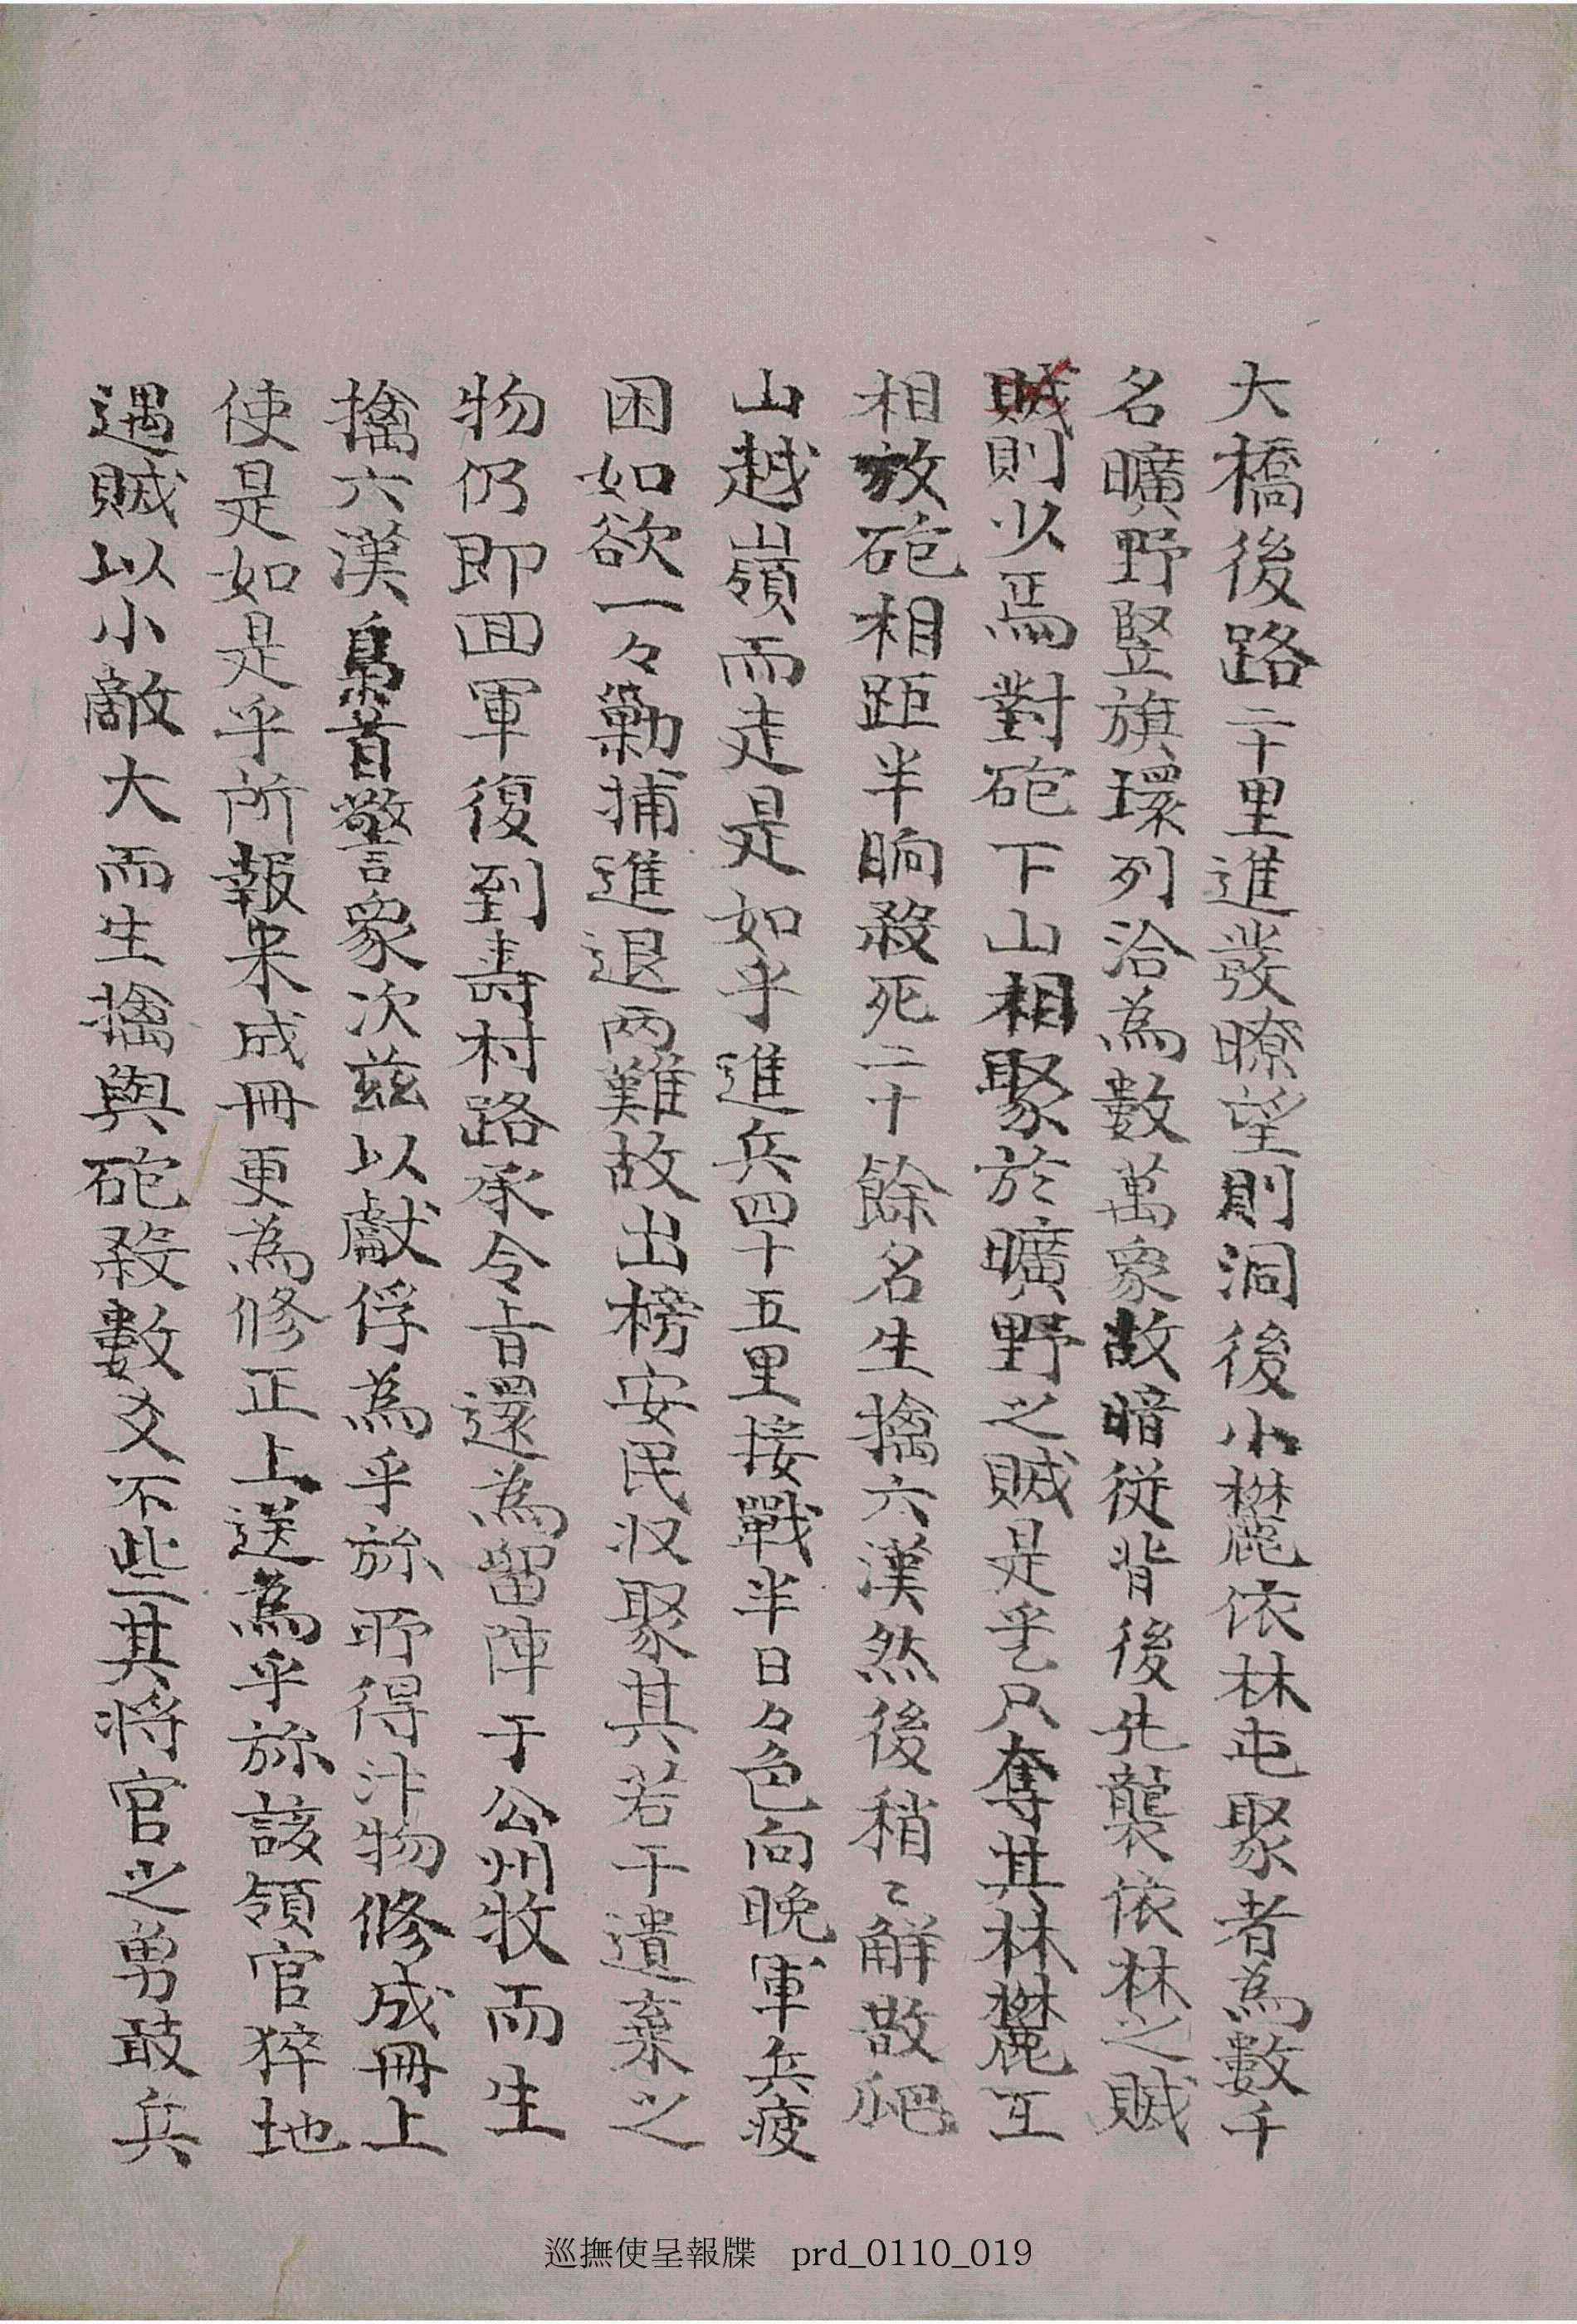 大橋後路二十里進發暸望則洞後小麓依林屯聚者為數千
名曠野竪旗環列洽為數萬衆故暗從背後先襲依林之賊
賊則以焉對砲下山相聚於曠野之賊是乎乙只奪其林麓互
相放砲相距半晌殺死二十餘名生擒六漢然後稍〻解散爬
山越嶺而走是如乎進兵四十五里接戰半日々色向晩軍兵疲
困如欲一々勦捕進退兩難故出榜安民収聚其若干遺棄之
物仍即囬軍復到壽村路承令旨還為留陣于公州牧而生
擒六漢梟首警衆次玆以獻俘為乎旀所得汁物修成冊上
使是如是乎所報来成冊更為修正上送為乎旀該領官猝地
遇賊以小敵大而生擒與砲殺數爻不些其將官之勇敢兵
巡撫使呈報牒 prd_0110_019